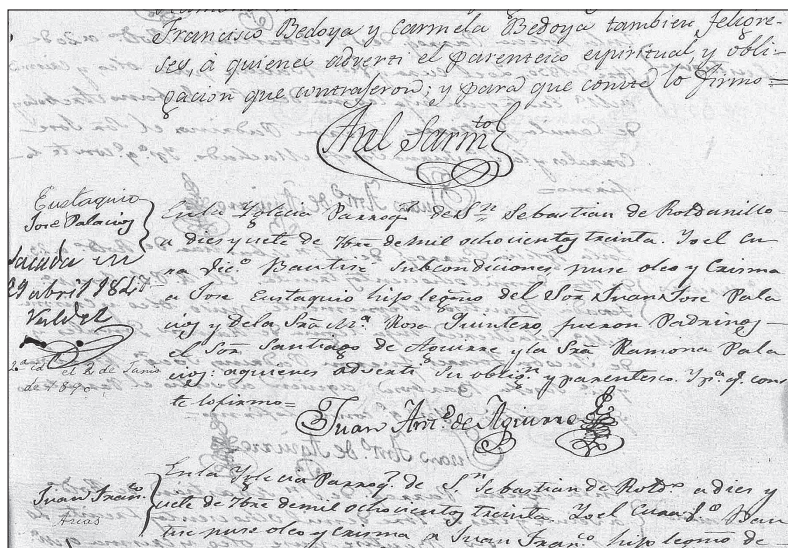 Francisco Bedoya y Carmela Bedoya tambien feligre-
ses, á quienes adverti el parentesco espiritual y obli-
gacion que contrajeron; y para que conste lo firmo=
Eustaquio
José Palacios
Sacada en
29 abril 1847
Valdez
2ª
de 1890
En la Yglecia Parroql. de Sn. Sebastian de Roldanillo
a dies y ciete de 7bre de mil ochocientos treinta. Yo el Cu-
ra Bautisé subcondicione, puse oleo y Crisma
a Jose Eustaquio hijo legmo del Sor. Juan Jose Pala
cios y de la Sra. Mª. Rosa Quintero, fueron Padrinos
el Sor. Santiago de Aguirre y la Sra. Ramona Pala
cios: a quienes adverti su obligon. y parentesco. Y pª. q. cons
te lo firmo=
Juan Anto. de Aguirre
Juan Franco.
Arias
En la Yglecia Parroql. de Sn. Sebastian de Roldo. a dies y
ciete de 7bre de mil ochocientos treinta. Yo el Cura Bau
tise puse oleo y Crisma a Juan Franco. hijo legmo de